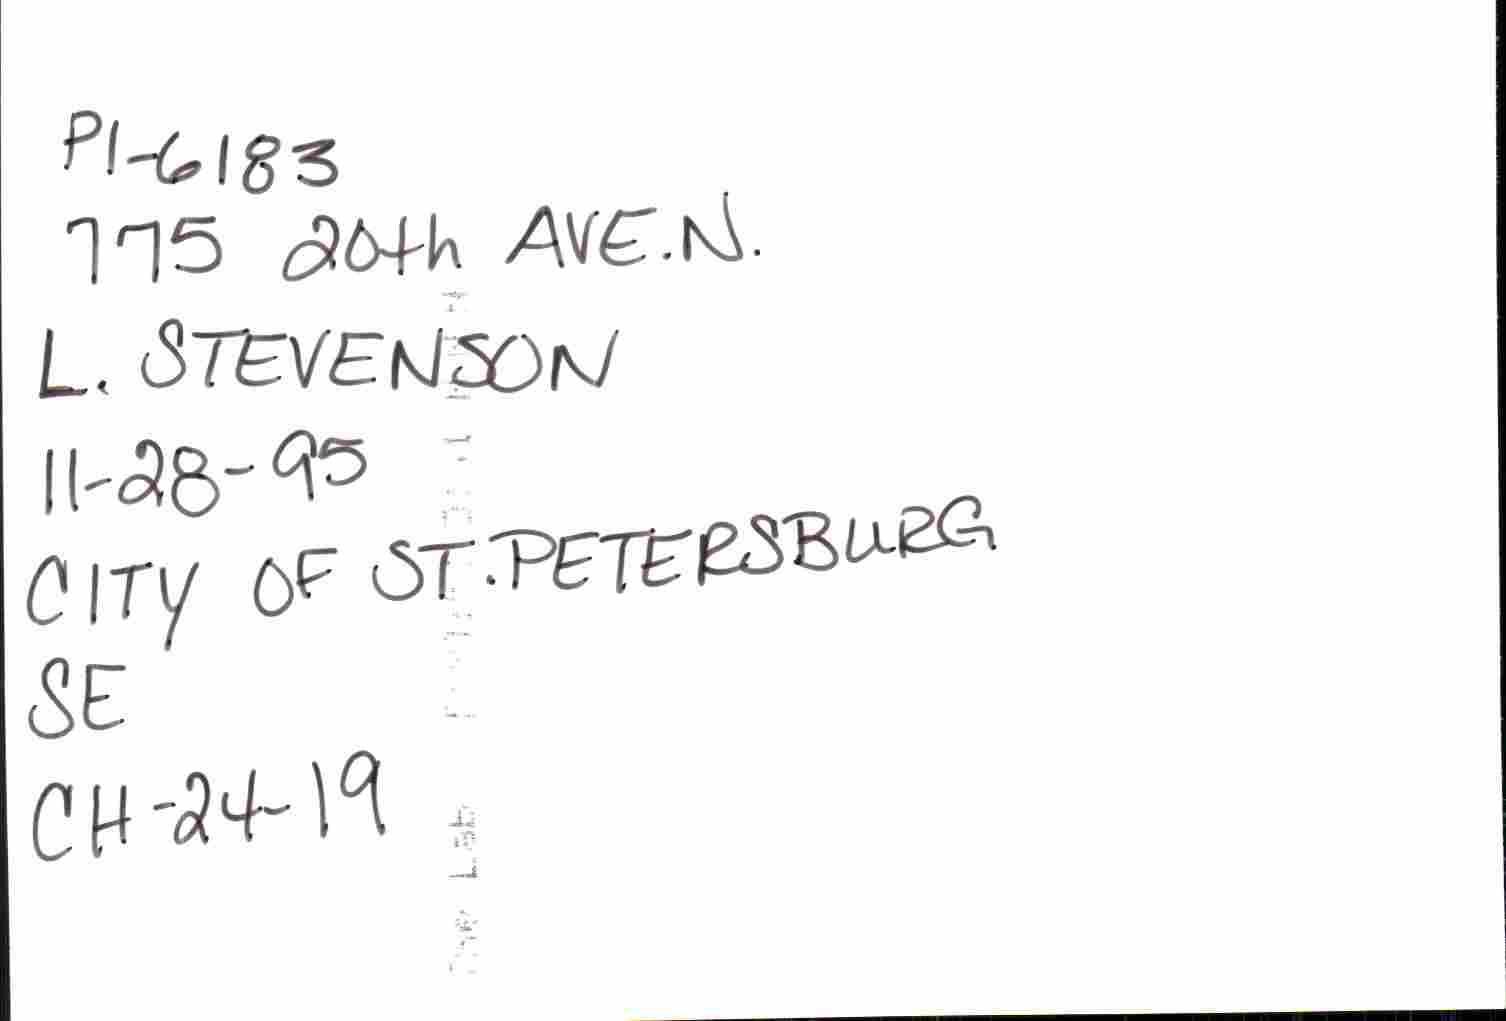 P1-6183
775 20th AVE.N.
L. STEVENSON
11-28-95
CITY OF ST.PETERSBURG
SE
CH-24-19